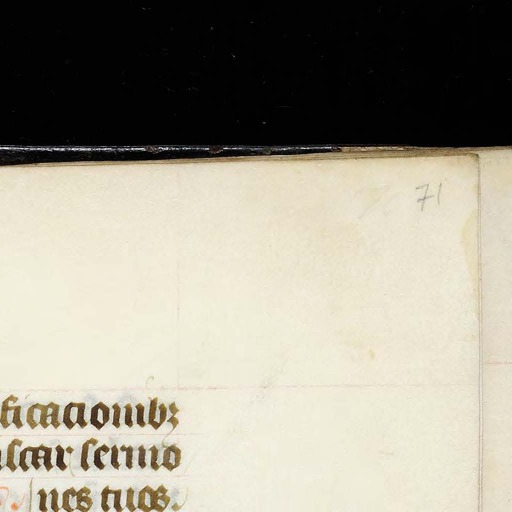 71
ficationibꝫ
iscar sermo
nes tuos.